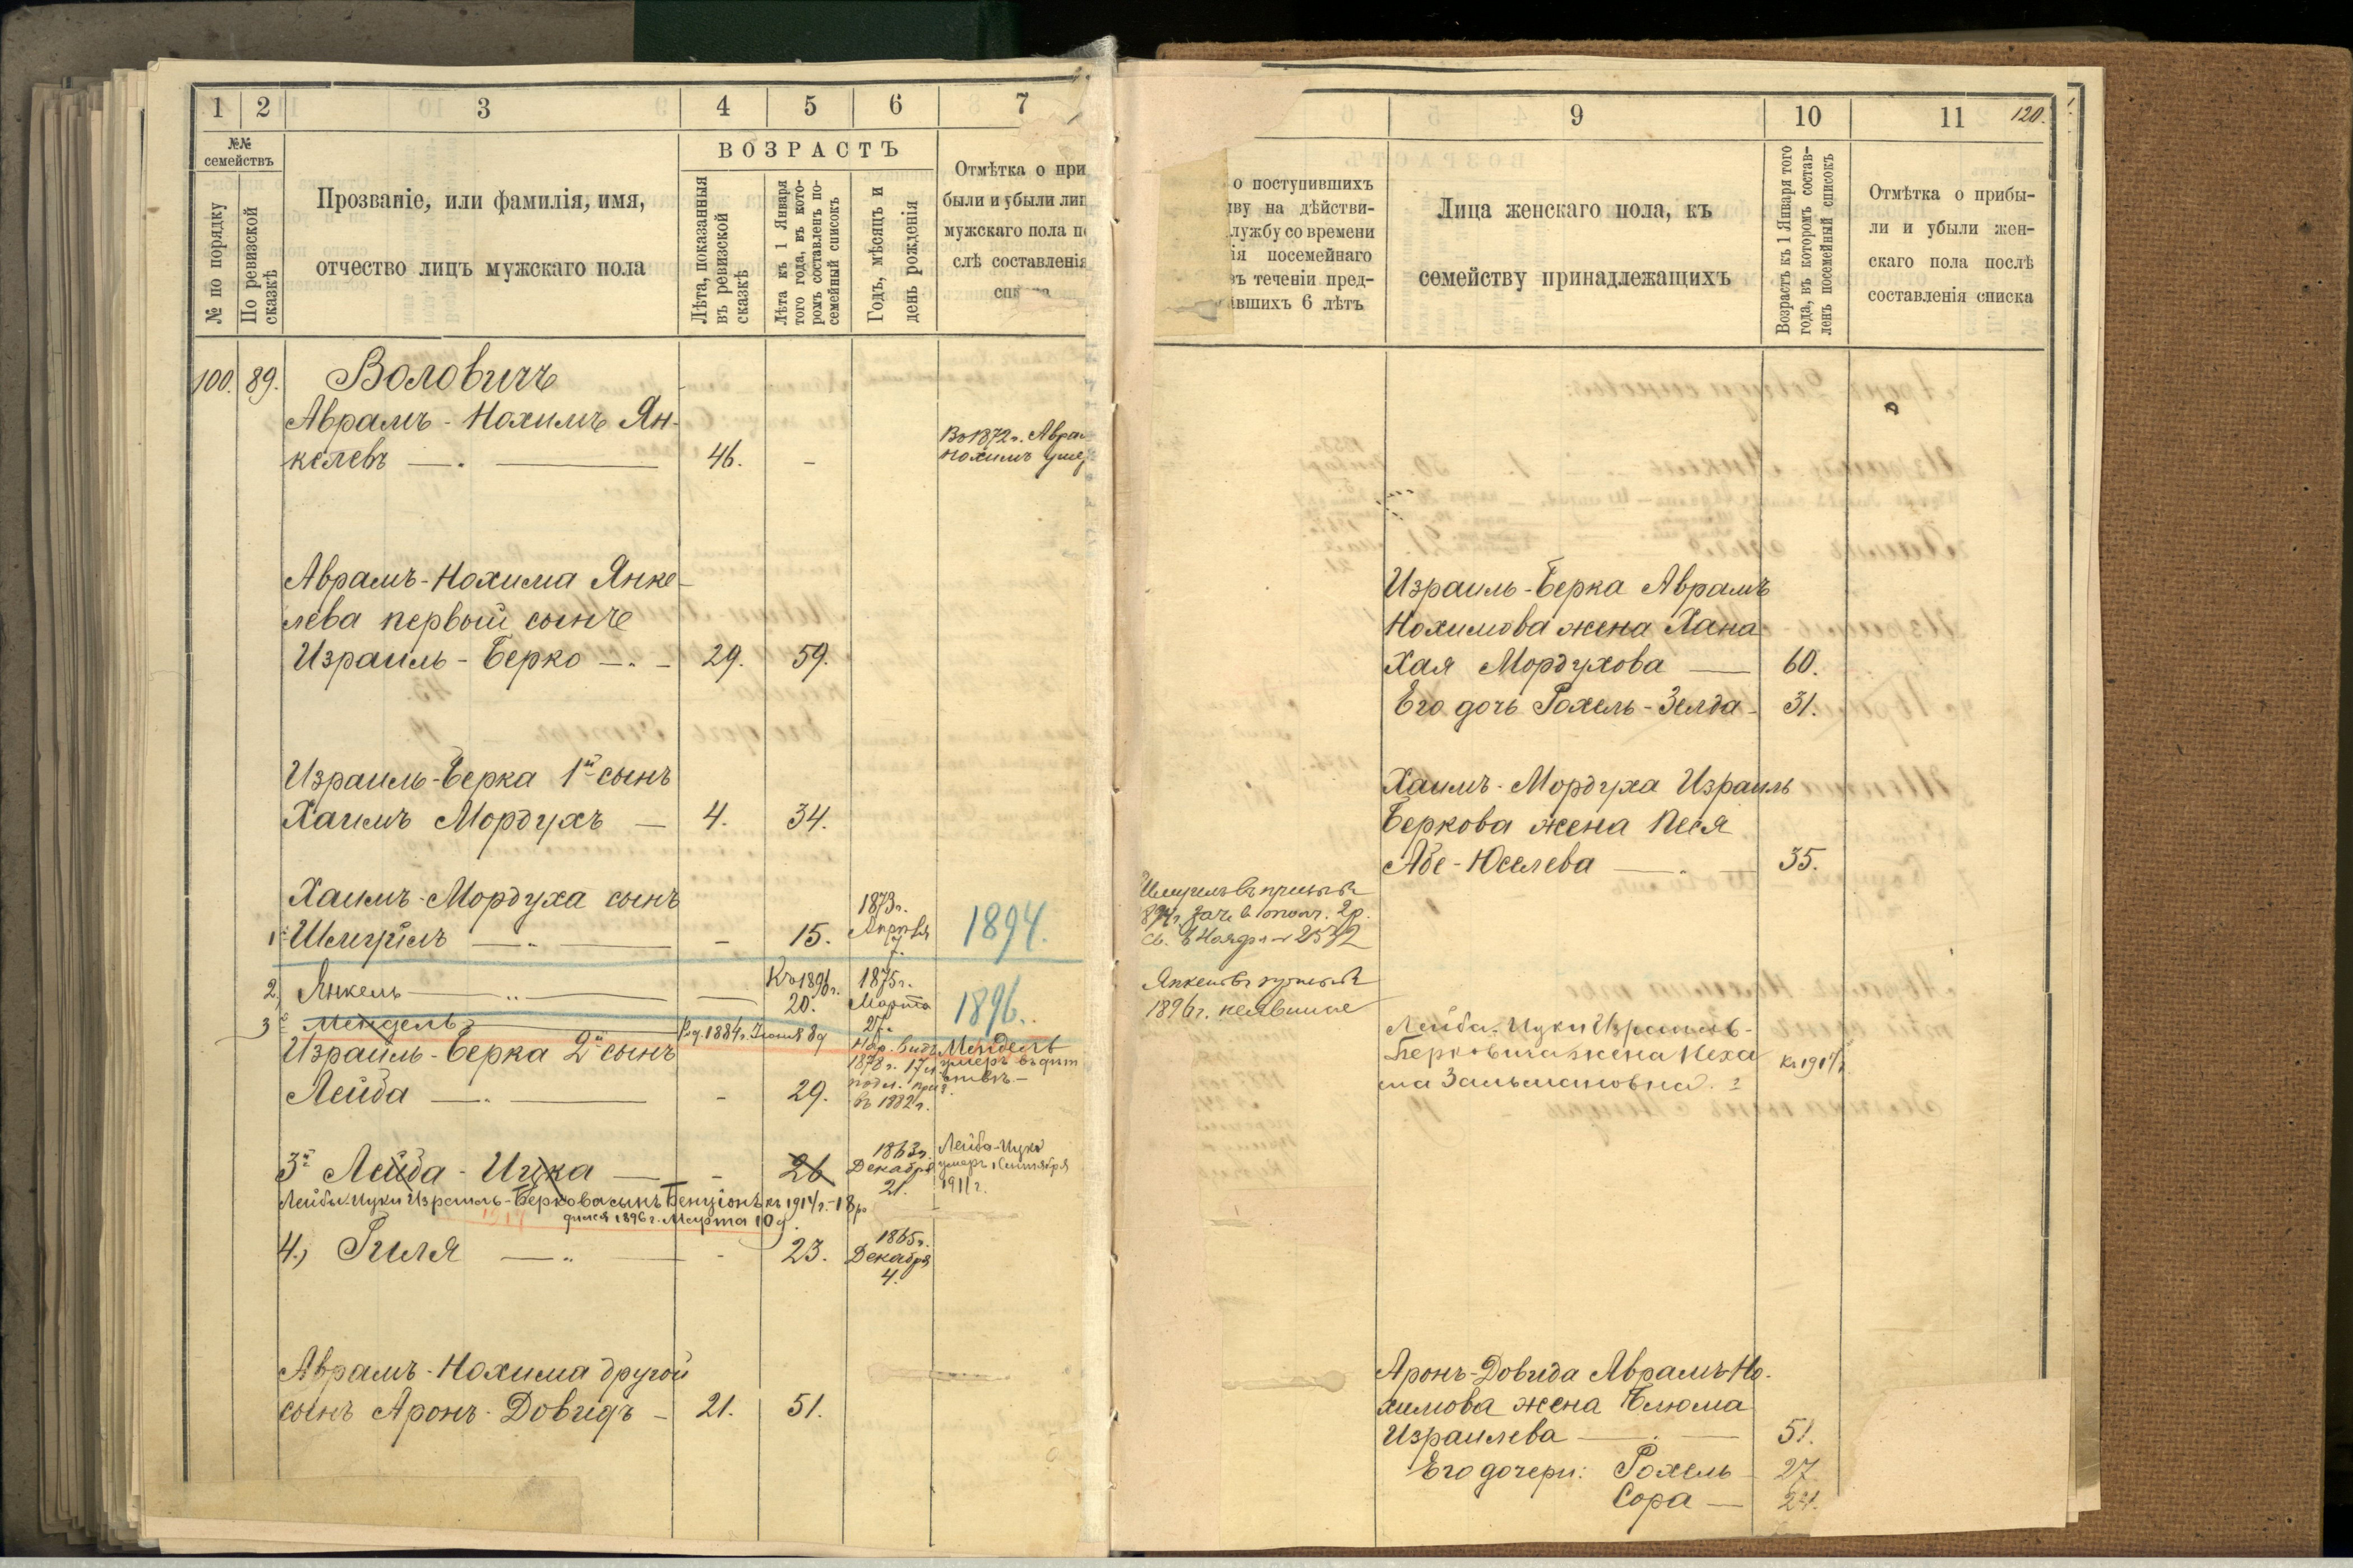 1 2 3 4 5 6 7
№№ семействъ
№ по порядку
По ревизской сказкѣ
Прозваніе, или фамилія, имя,
отчество лицъ мужскаго пола
ВОЗРАСТЪ
Лѣта, показанныя въ ревизской сказкѣ
Лѣта къ 1 Января того года, въ которомъ составленъ посемейный списокъ
Годъ, мѣсяцъ и день рожденія
Отмѣтка о при
были и убыли лиц
мужскаго пола по
слѣ составленія
100. 89. Воловичъ
Аврамъ - Нохимъ Ян-
келевъ 46. –
Во 1872 г. Аврам
Нохимъ умер
Аврамъ-Нохима Янке-
лева первый сынъ
Израиль - Берко 29. 59.
Израиль-Берка 1й сынъ
Хаимъ Мордухъ 4. 34.
Хаимъ-Мордуха сынъ
1й Шмуилъ – 15. 1873 г. Апрѣля 7. 1894.
2) Янкель Къ 1896 г. 20. 1875 г. Марта 27. 1896.
3й Мендель Род. 1884 г. Іюня 8 д
Мендель
умеръ въ дѣт
ствѣ –
Израиль-Берка 2й сынъ
Лейба – 29.
1878 г. 17
въ 1882 г.
3й Лейба - Ицка – 26 1863 г. Декабря 21.
Лейба-Ицко
умеръ Сентября
1911 г.
Лейбы-Ицки Израиль-Беркова сынъ Бенціонъ къ 1914 г. - 18 ро
дился 1896 г. Марта 10 д.
4.) Гиля – 23. 1865 г. Декабря 4.
Аврамъ-Нохима другой
сынъ Аронъ-Довидъ – 21. 51.
9 10 11 120.
о поступившихъ
ву на дѣйстви-
лужбу со времени
ія посемейнаго
въ теченіи пред-
авшихъ 6 лѣтъ
Лица женскаго пола, къ
семейству принадлежащихъ
Возрастъ къ 1 Января того года, въ которомъ составленъ посемейный списокъ
Отмѣтка о прибы-
ли и убыли жен-
скаго пола послѣ
составленія списка
Израиль-Берка Аврамъ
Нохимова жена Хана
Хая Мордухова 60.
Его дочь Рохель-Зелда 31.
Хаимъ-Мордуха Израиль
Беркова жена Песя
Абе-Юселева 35.
Шмуилъ въ призывъ
894 г. зач. в ополч. 2 р.
св. Ноября 2532
Янкель въ призывъ
1896 г. неявился
Лейбы-Ицки Израиль-
Берковича жена Неха
ма Зальмановна. къ 1914 г.
Аронъ-Довида Аврамъ Но-
химова жена Блюма
Израилева 51.
Его дочери: Рохель 27
Сора 24.